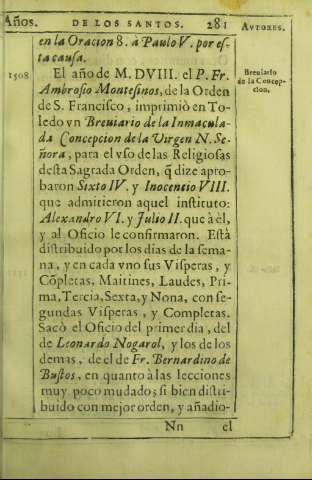 Años. DE LOS SANTOS. 281 AVTORES.
en la Oracion 8. à Paulo V. por es-
ta causa.
1508 El año de M. DVIII. el P. Fr. Breuiario
Ambrosio Montesinos, de la Orden de la Concep-
de S. Francisco, imprimiò en To- cion.
ledo vn Breuiario de la Inmacula-
da Concepcion de la Virgen N. Se-
ñora, para el vso de las Religiosas
desta Sagrada Orden, q̃ dize apro-
baron Sixto IV. y Inocencio VIII.
que admitieron aquel instituto:
Alexandro VI. y Julio II. que à èl,
y al Oficio le confirmaron. Està
distribuido por los dias de la sema-
na, y en cada vno sus Visperas, y
Cõpletas, Maitines, Laudes, Pri-
ma, Tercia, Sexta, y Nona, con se-
gundas Visperas, y Completas.
Sacò el Oficio del primer dia, del
de Leonardo Nogarol, y los de los
demas, de el de Fr. Bernardino de
Bustos, en quanto à las lecciones
muy poco mudado; si bien distri-
buido con mejor orden, y añadio-
Nn el